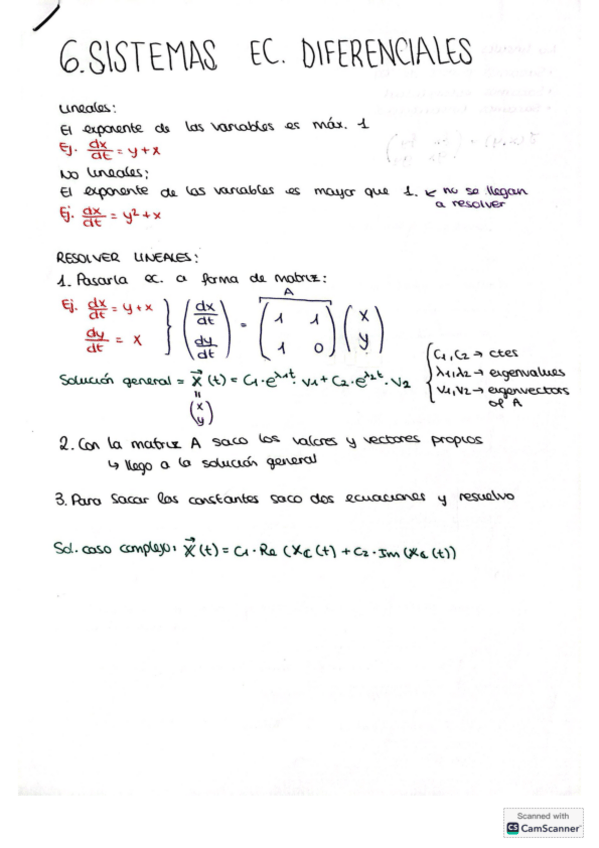 6. SISTEMAS EC. DIFERENCIALES
Lineales:
El exponente de las variables es máx. 1
Ej. dx/dt = y + x
No lineales:
El exponente de las variables es mayor que 1. ← no se llegan a resolver
Ej. dx/dt = y² + x
RESOLVER LINEALES:
1. Pasarla ec. a forma de matriz:
A
Ej. dx/dt = y + x } (dx/dt) = (1 1) (x)
dy/dt = x (dy/dt) (1 0) (y)
Solución general = x⃗ (t) = C1 · e^λ1t · V1 + C2 · e^λ2t · V2
= (x y)
{ C1, C2 → ctes
λ1, λ2 → eigenvalues
V1, V2 → eigenvectors
of A
2. Con la matriz A saco los valores y vectores propios
↳ llego a la solución general
3. Para sacar las constantes saco dos ecuaciones y resuelvo
Sol. caso complejo: x⃗ (t) = C1 · Re (Xℂ (t) + C2 · Im (Xℂ (t))
Scanned with
CS CamScanner